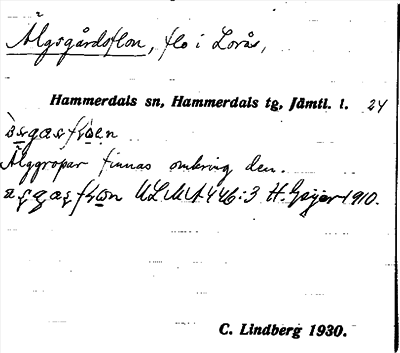 Älgsgårdsflon, flo i Lorås,
Hammerdals sn, Hammerdals tg, Jämtl. l. 24
Älggropar finnas omkring den.
ULMA 446:3 H. Geijer 1910.
C. Lindberg 1930.